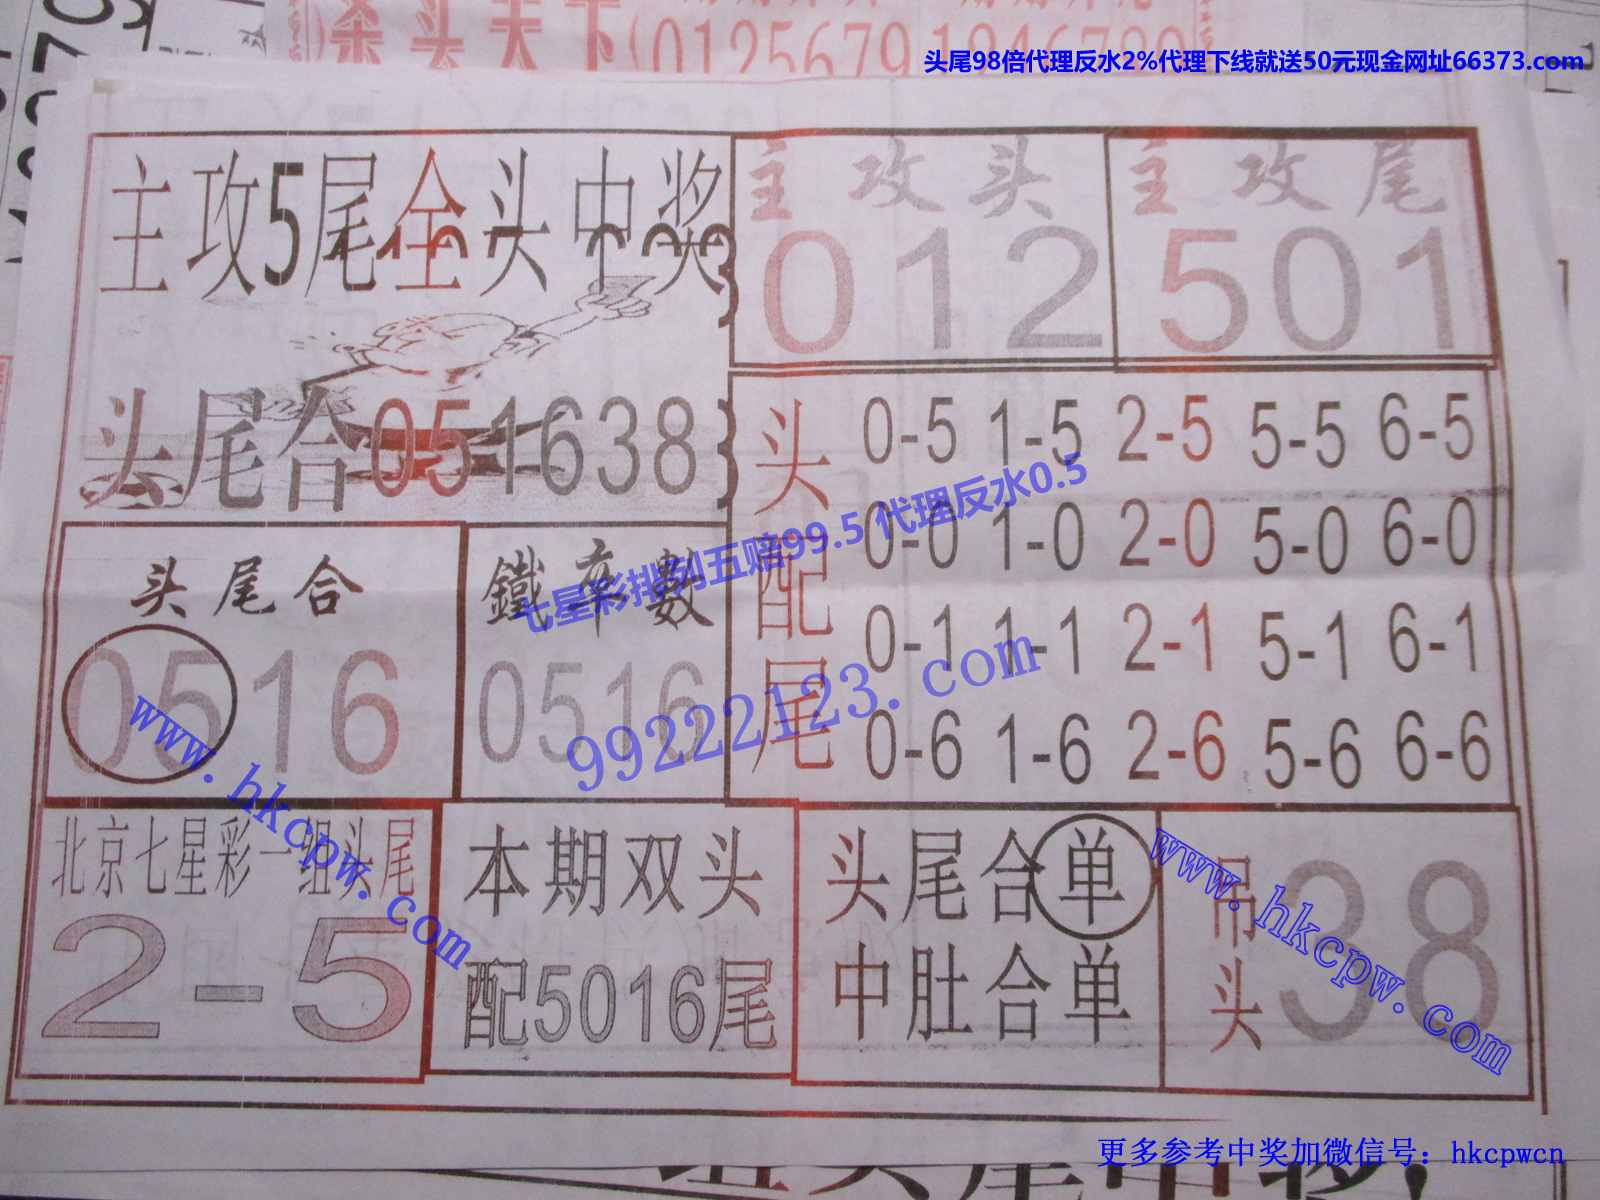 杀头天下(01256791946780)
头尾98倍代理反水2%代理下线就送50元现金网址66373.com
主攻5尾全头中奖
主攻头
012
主攻尾
501
头尾合051638
头配尾
0-5 1-5 2-5 5-5 6-5
0-0 1-0 2-0 5-0 6-0
0-1 1-1 2-1 5-1 6-1
0-6 1-6 2-6 5-6 6-6
七星彩排列五赔99.5 代理反水0.5
99222123.com
头尾合
0516
鐵率數
0516
www.hkcpw.com
北京七星彩一组头尾
2-5
本期双头
配5016尾
头尾合单
中肚合单
吊头
38
www.hkcpw.com
更多参考中奖加微信号：hkcpwcn